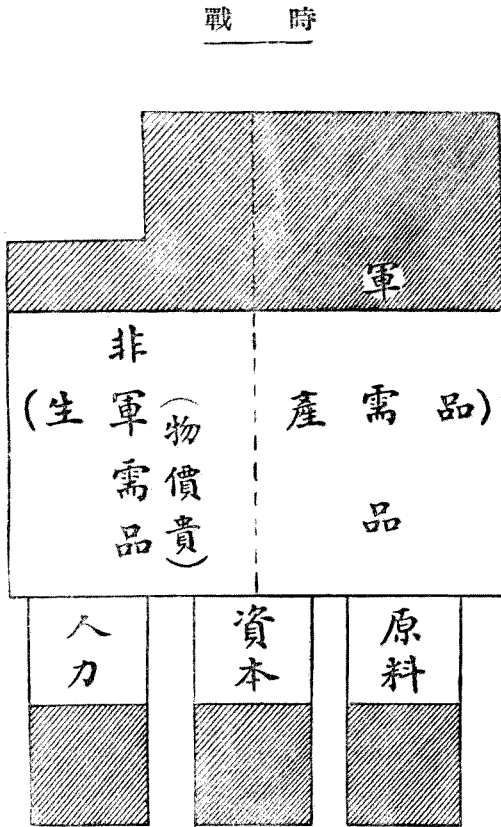 戰時
軍需品
非軍需品
(物價貴)
(生產品)
人力
資本
原料